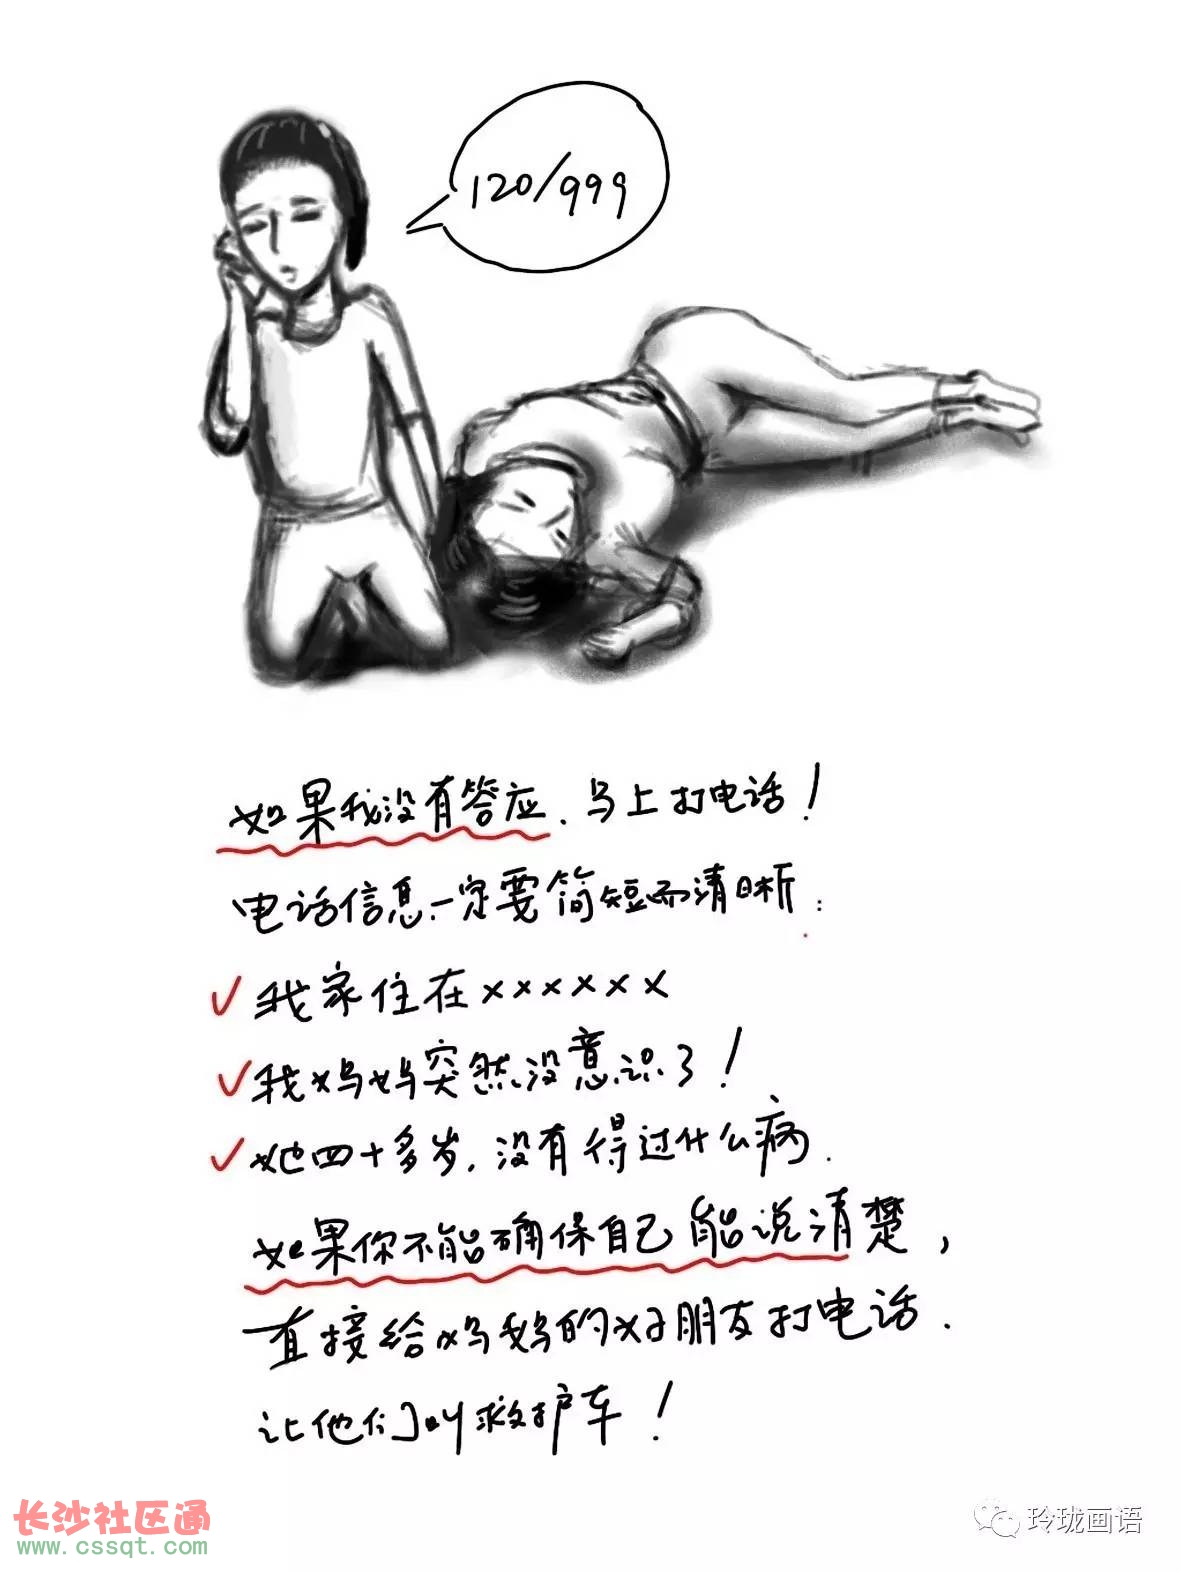 120/999
如果我没有答应、马上打电话！
电话信息、一定要简短而清晰：
✓我家住在××××××
✓我妈妈突然没意识了！
✓她四十多岁，没有得过什么病．
如果你不能确保自己能说清楚，
直接给妈妈的好朋友打电话．
让他们叫救护车！
长沙社区通
www.cssqt.com
玲珑画语